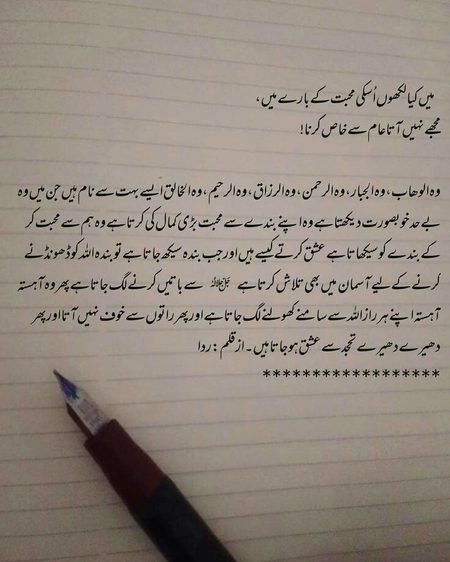 میں کیا لکھوں اُسکی محبت کے بارے میں،
مجھے نہیں آتا عام سے خاص کرنا!
وہ الوھاب، وہ الجبار، وہ الرحمن، وہ الرزاق، وہ الرحیم، وہ الخالق ایسے بہت سے نام ہیں جن میں وہ
بے حد خوبصورت دیکھتا ہے وہ اپنے بندے سے محبت بڑی کمال کی کرتا ہے وہ ہم سے محبت کر
کے بندے کو سیکھاتا ہے عشق کرتے کیسے ہیں اور جب بندہ سیکھ جاتا ہے تو بندہ اللہ کو ڈھونڈنے
کرنے کے لیے آسمان میں بھی تلاش کرتا ہے ﷻ سے باتیں کرنے لگ جاتا ہے پھر وہ آہستہ
آہستہ اپنے ہر راز اللہ سے سامنے کھولنے لگ جاتا ہے اور پھر راتوں سے خوف نہیں آتا اور پھر
دھیرے دھیرے تجد سے عشق ہو جاتا ہیں۔ از قلم: ردا
******************